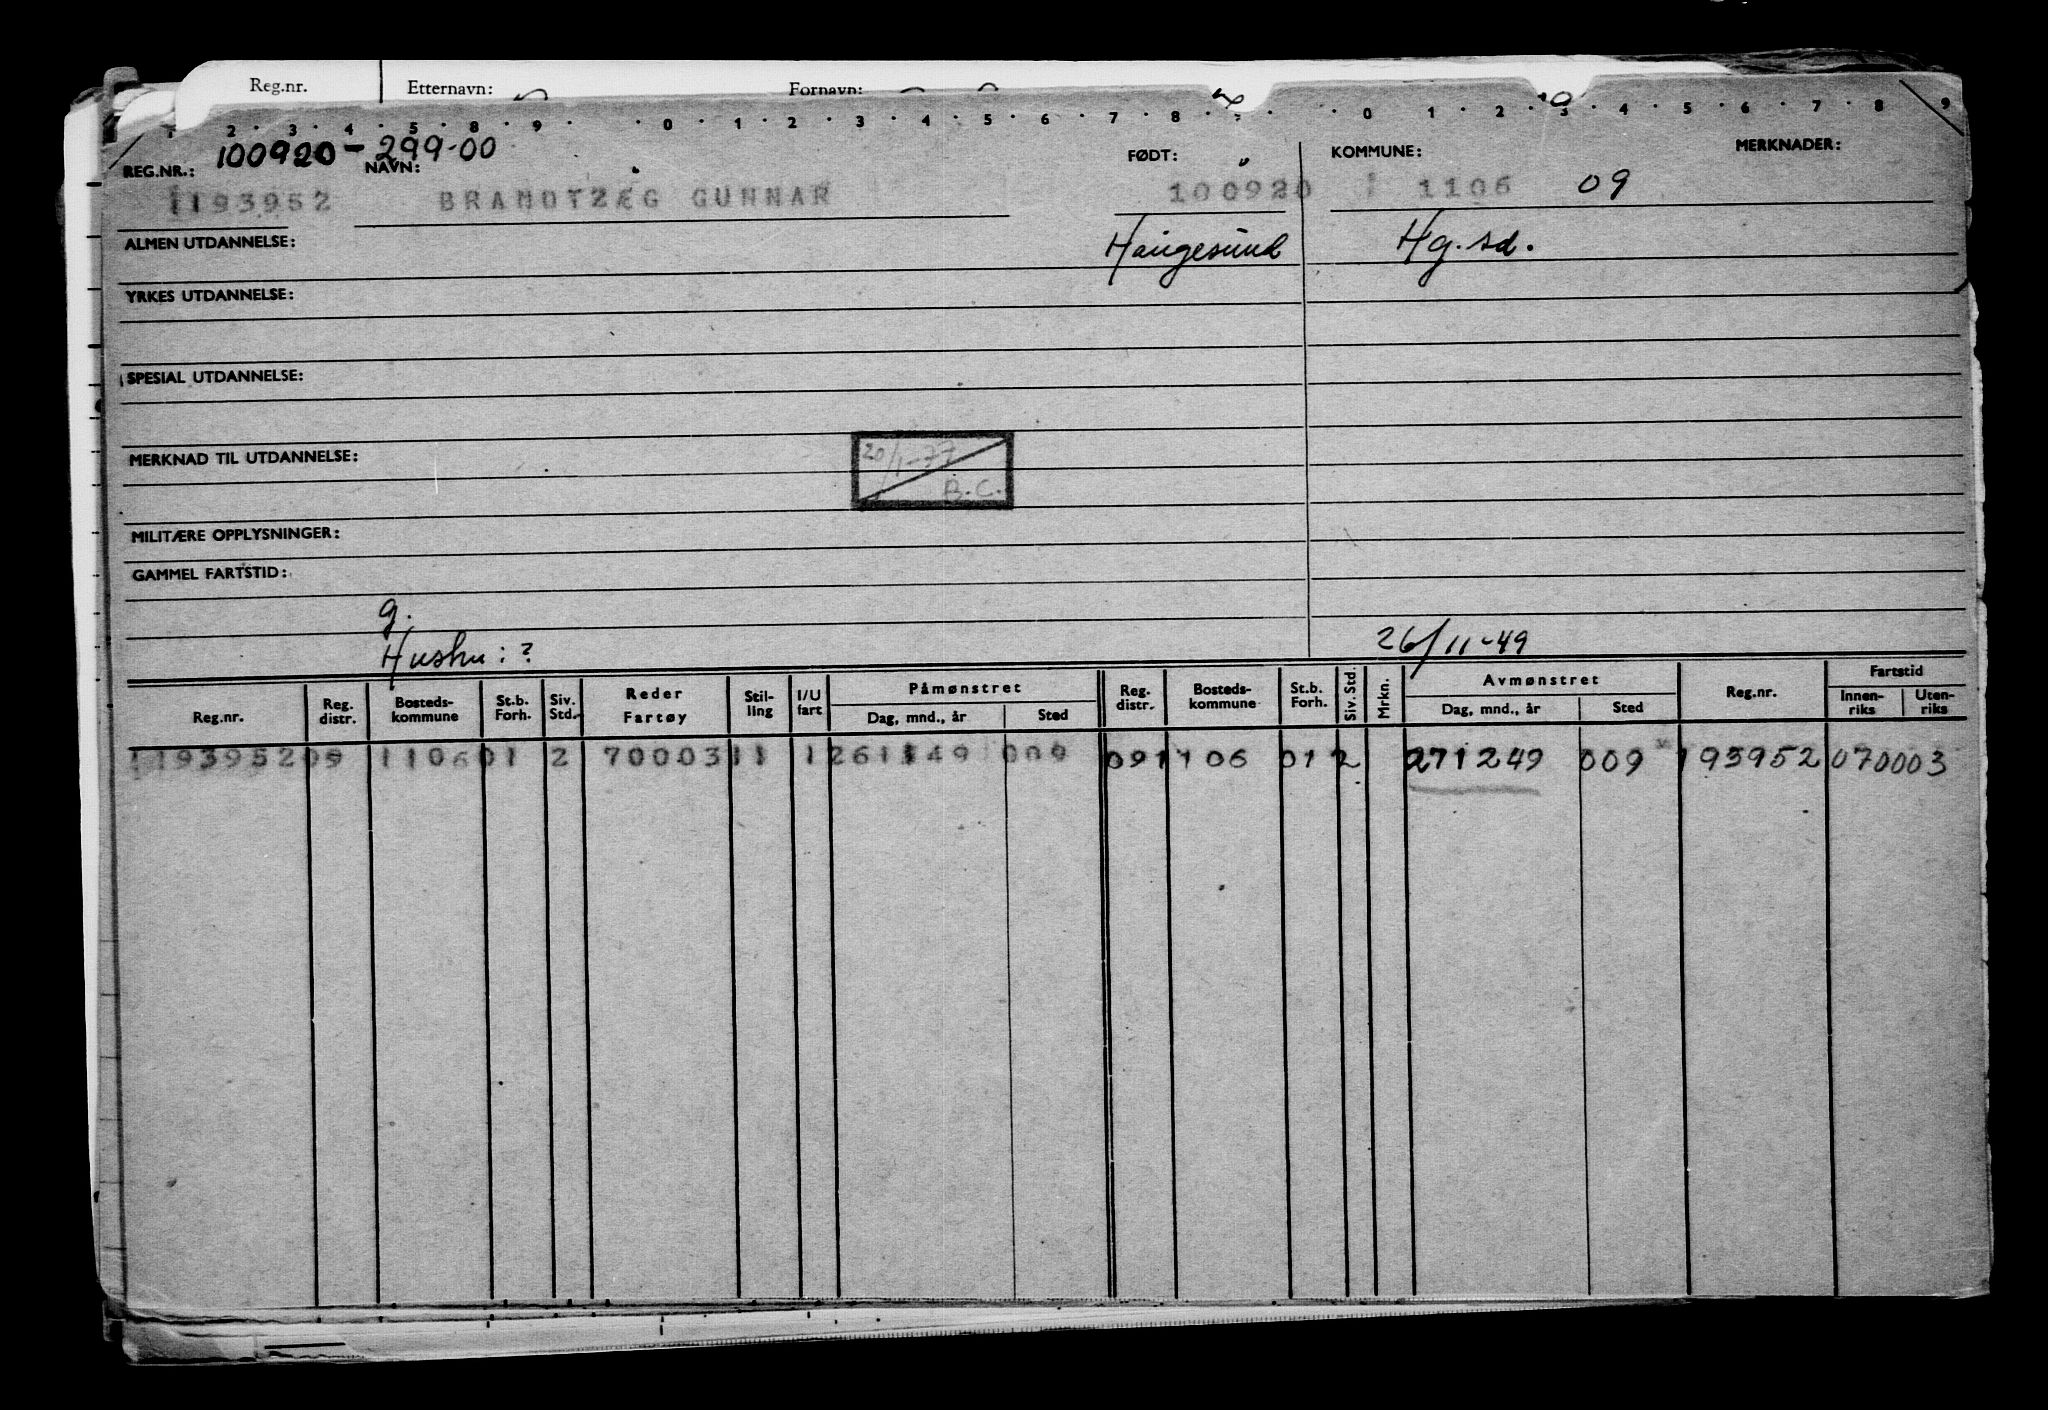 Reg.nr. Etternavn: Fornavn:
1 2 3 4 5 8 9 0 1 2 3 4 5 6 7 8 0 1 2 3 4 5 6 7 8 9
100920-299-00
REG.NR.: NAVN: FØDT: KOMMUNE: MERKNADER:
1193952 BRANDTZÆG GUNNAR 100920 1106 09
ALMEN UTDANNELSE: Haugesund Hg.sd.
YRKES UTDANNELSE:
SPESIAL UTDANNELSE:
20/1-77
MERKNAD TIL UTDANNELSE:
B.C.
MILITÆRE OPPLYSNINGER:
GAMMEL FARTSTID:
g.
Hushu: ? 26/11-49
Reg.nr. Reg. distr. Bosteds-kommune St.b. Forh. Siv. Std. Reder Fartøy Stil-ling I/U fart Påmønstret Dag, mnd., år Sted Reg. distr. Bosteds-kommune St.b. Forh. Siv. Std. Mrkn. Avmønstret Dag, mnd., år Sted Reg.nr. Fartstid Innen-riks Uten-riks
1193952 09 1106 01 2 70003 11 1 261149 009 09 1106 01 2 271249 009 193952 070003